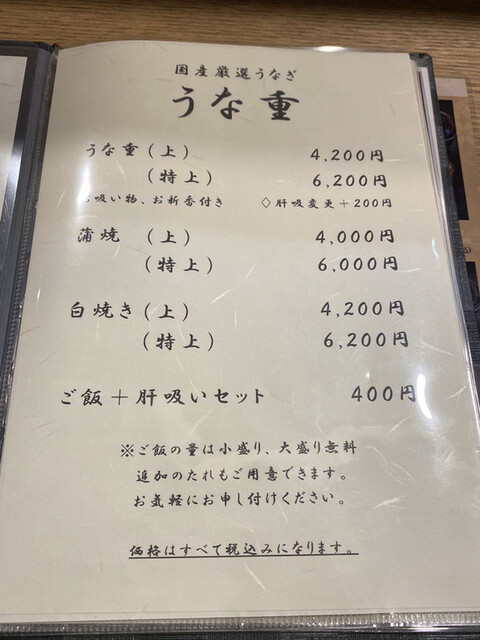 国産厳選うなぎ
うな重
うな重(上) 4,200円
(特上) 6,200円
吸い物、お新香付き ◇肝吸変更+200円
蒲焼 (上) 4,000円
(特上) 6,000円
白焼き(上) 4,200円
(特上) 6,200円
ご飯+肝吸いセット 400円
※ご飯の量は小盛り、大盛り無料
追加のたれもご用意できます。
お気軽にお申し付けください。
価格はすべて税込みになります。